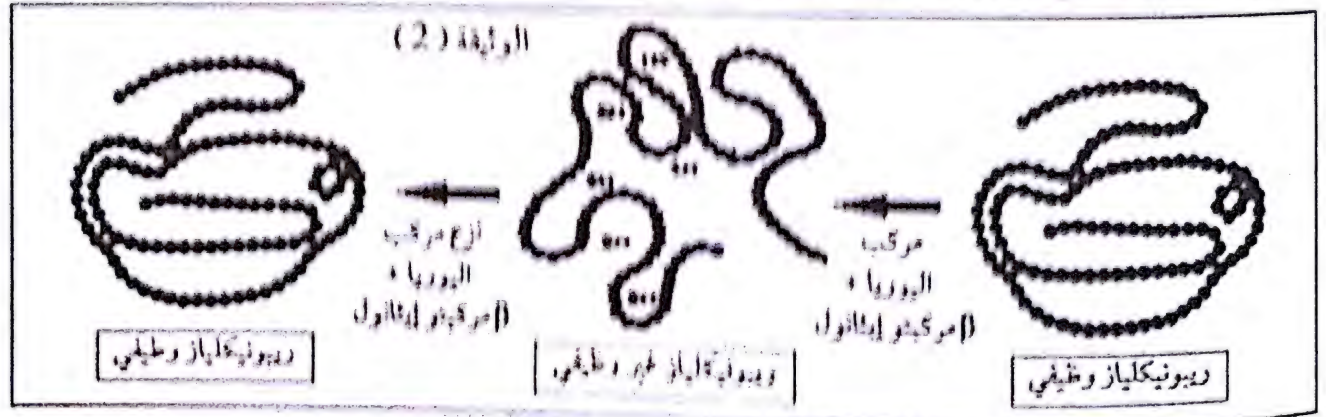 الوثيقة (2)
مركب
اليوريا +
β مركبتو إيثانول
نزع مركب
اليوريا +
β مركبتو إيثانول
ريبونيكلياز وظيفي
ريبونيكلياز غير وظيفي
ريبونيكلياز وظيفي